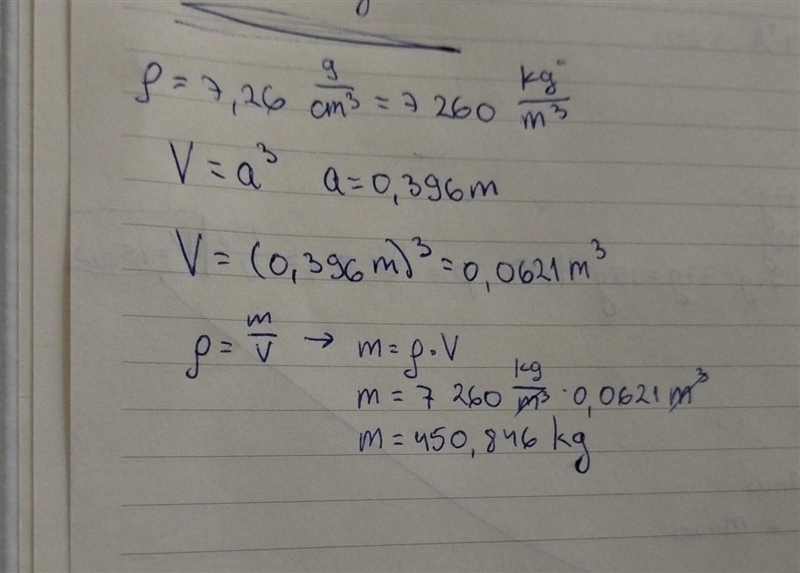 ρ = 7,26 g/cm³ = 7 260 kg/m³
V = a³ a = 0,396 m
V = (0,396 m)³ = 0,0621 m³
ρ = m/V → m = ρ · V
m = 7 260 kg/m³ · 0,0621 m³
m = 450,846 kg